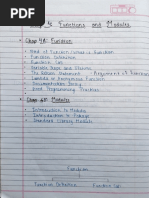 Chap 4: Functions and Modules
Chap 4A: Function
• Need of Function
• Function Definition
• Function Call
• Variable Scope and Lifetime
• The Return Statement
• Lambda or Anonymous Function
• Documentation String
• Good Programming Practices
Modules
• Introduction to Modules
• Introduction to Package
• Standard Library Module
Function
Function Definition Function Call